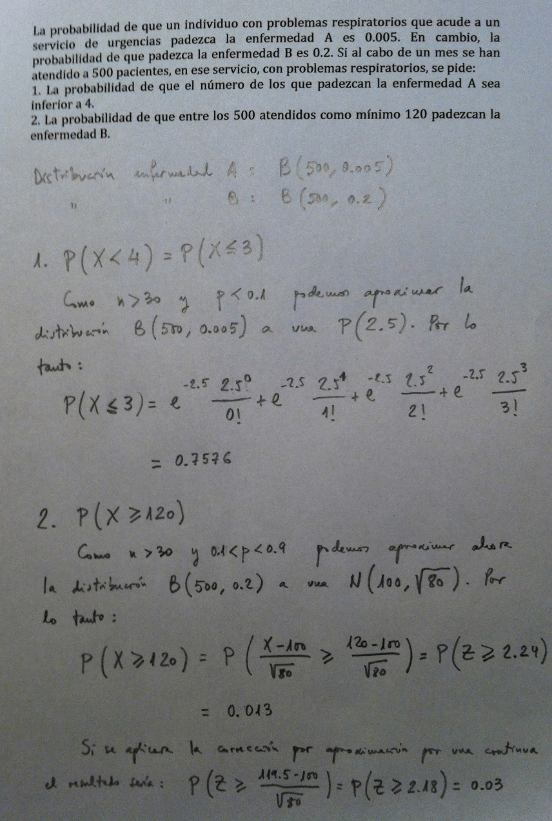 La probabilidad de que un individuo con problemas respiratorios que acude a un
servicio de urgencias padezca la enfermedad A es 0.005. En cambio, la
probabilidad de que padezca la enfermedad B es 0.2. Si al cabo de un mes se han
atendido a 500 pacientes, en ese servicio, con problemas respiratorios, se pide:
1. La probabilidad de que el número de los que padezcan la enfermedad A sea
inferior a 4.
2. La probabilidad de que entre los 500 atendidos como mínimo 120 padezcan la
enfermedad B.
Distribución enfermedad A : B(500, 0.005)
" " B : B(500, 0.2)
1. P(X < 4) = P(X ≤ 3)
Como n > 30 y p < 0.1 podemos aproximar la
distribución B(500, 0.005) a una P(2.5). Por lo
tanto :
P(X ≤ 3) = e^-2.5 2.5^0/0! + e^-2.5 2.5^1/1! + e^-2.5 2.5^2/2! + e^-2.5 2.5^3/3!
= 0.7576
2. P(X ≥ 120)
Como n > 30 y 0.1 < p < 0.9 podemos aproximar ahora
la distribución B(500, 0.2) a una N(100, √80). Por
lo tanto :
P(X ≥ 120) = P((X-100)/√80 ≥ (120-100)/√80) = P(Z ≥ 2.24)
= 0.013
Si se aplicara la corrección por aproximación por una continua
el resultado sería : P(Z ≥ (119.5-100)/√80) = P(Z ≥ 2.18) = 0.03